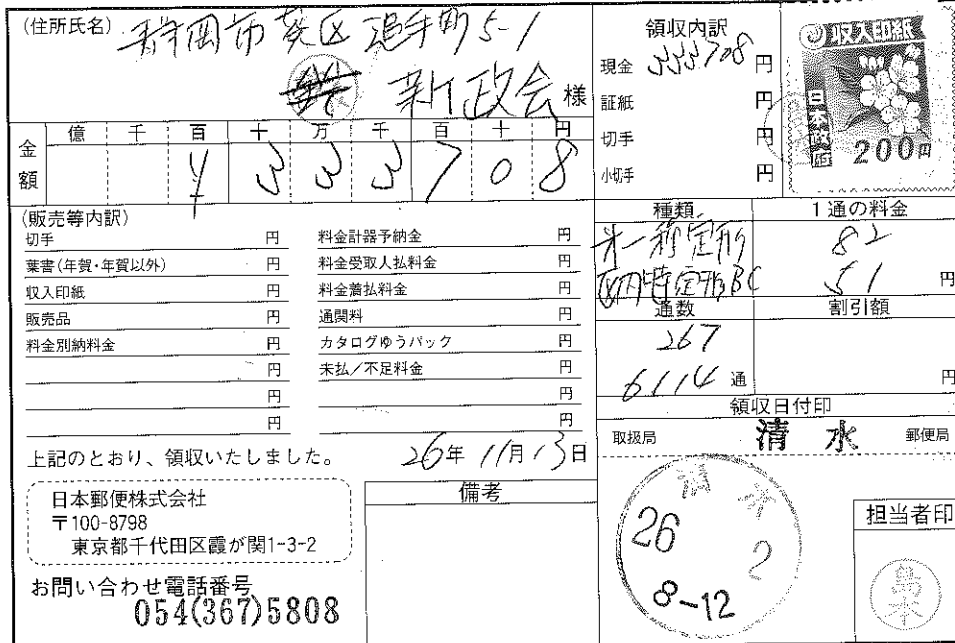 (住所氏名) 静岡市葵区追手町5-1
新政会 様
金額 億 千 百 十 万 千 百 十 円
¥333708
領収内訳
現金 333708 円
証紙 円
切手 円
小切手 円
収入印紙
日本政府
200円
(販売等内訳)
切手 円
葉書(年賀・年賀以外) 円
収入印紙 円
販売品 円
料金別納料金 円
円
円
円
料金計器予納金 円
料金受取人払料金 円
料金着払料金 円
通関料 円
カタログゆうパック 円
未払/不足料金 円
円
円
種類 1通の料金
第一種定形 82
区内特定形BC 51 円
通数 割引額
267
6114 通 円
領収日付印
取扱局 清水 郵便局
上記のとおり、領収いたしました。 26年11月13日
日本郵便株式会社
〒100-8798
東京都千代田区霞が関1-3-2
お問い合わせ電話番号
054(367)5808
備考
清水
26
2
8-12
担当者印